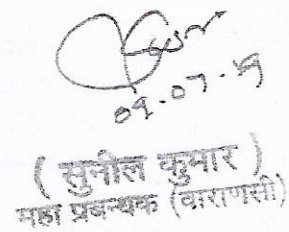 09-07-19
( सुनील कुमार )
महा प्रबन्धक (वाराणसी)